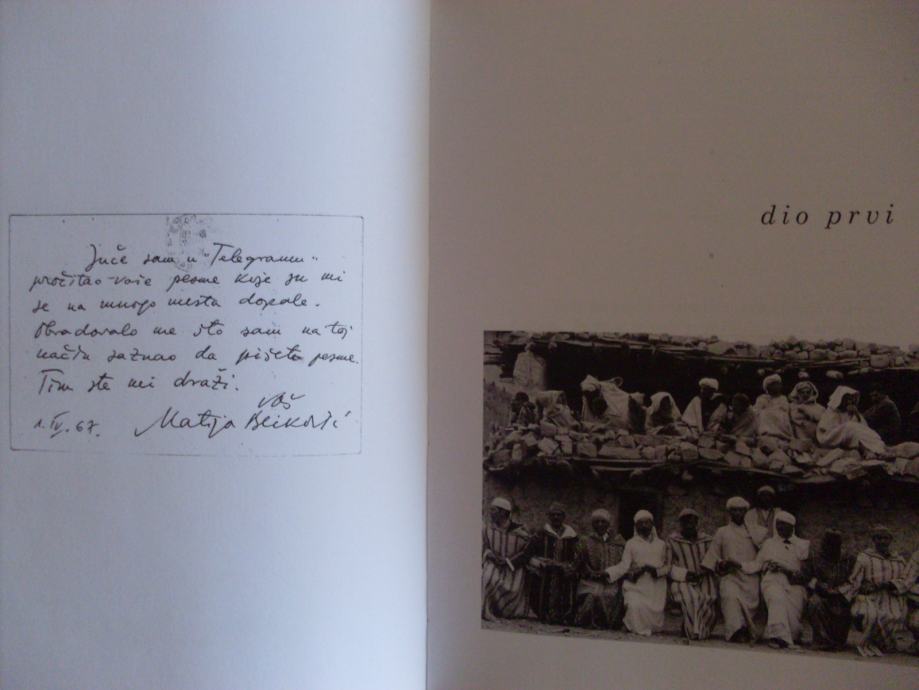 Juče sam u "Telegramu"
pročitao vaše pesme koje su mi
se na mnogo mesta dopale.
Obradovalo me što sam na toj
način saznao da pišete pesme.
Tim ste mi draži.
vaš
1. IV. 67. Matija Bećković
dio prvi